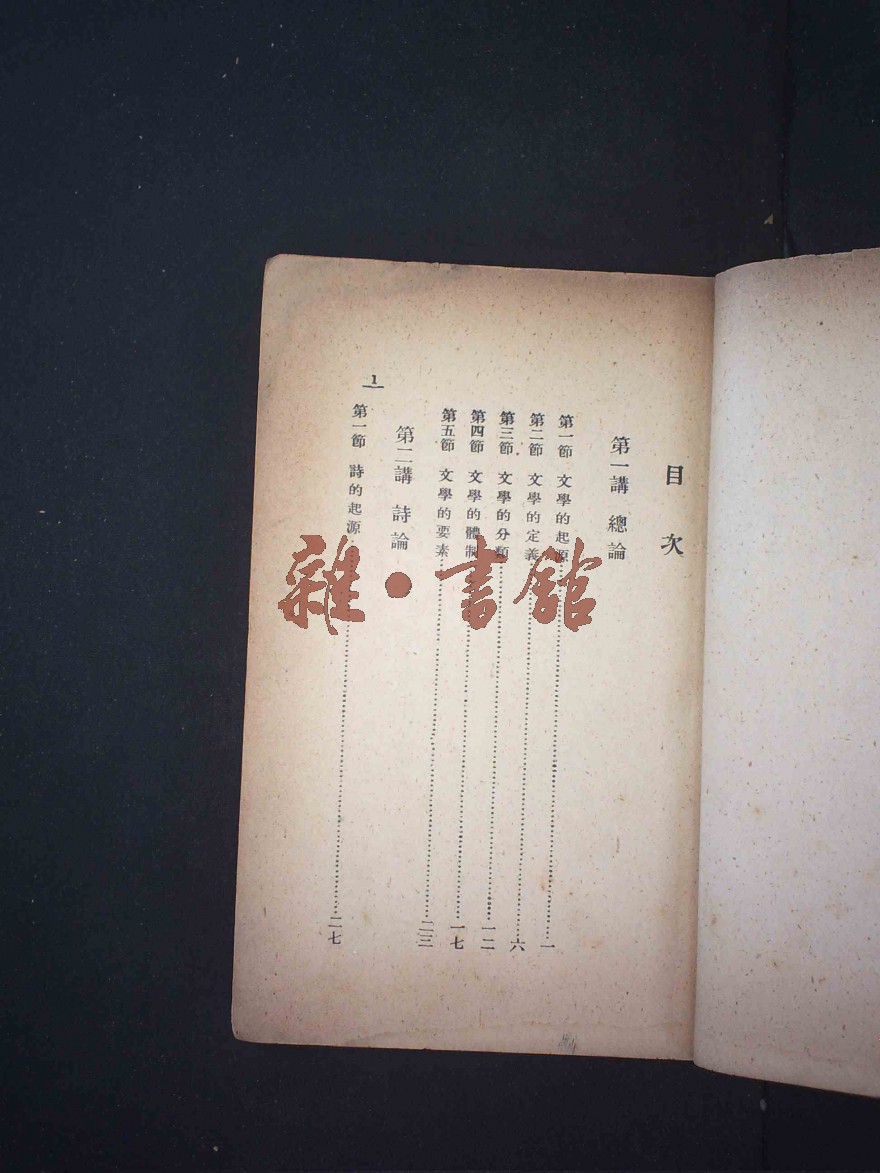 目次
第一講 總論
第一節 文學的起源⋯⋯一
第二節 文學的定義⋯⋯六
第三節 文學的分類⋯⋯一二
第四節 文學的體制⋯⋯一七
第五節 文學的要素⋯⋯二三
第二講 詩論
第一節 詩的起源⋯⋯二七
1
雜·書館